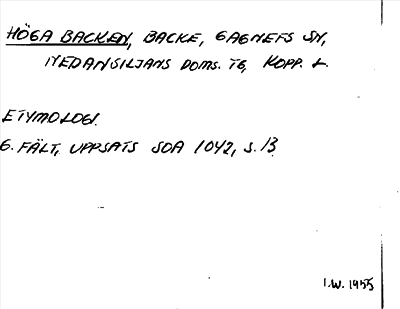 HÖGA BACKEN, BACKE, GAGNEFS SN,
NEDANSILJANS DOMS. TG, KOPP. L.
ETYMOLOGI.
G. FÄLT, UPPSATS SOA 1042, S. 13
I.W. 1955